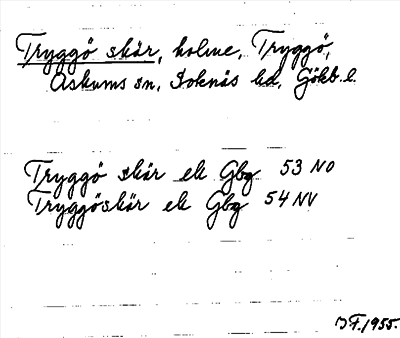 Tryggö skär, holme, Tryggö,
Askums sn, Sotenäs hd, Gökb. l.
Tryggö skär ek Gbg 53 NO
Tryggöskär ek Gbg 54 NV
1955.